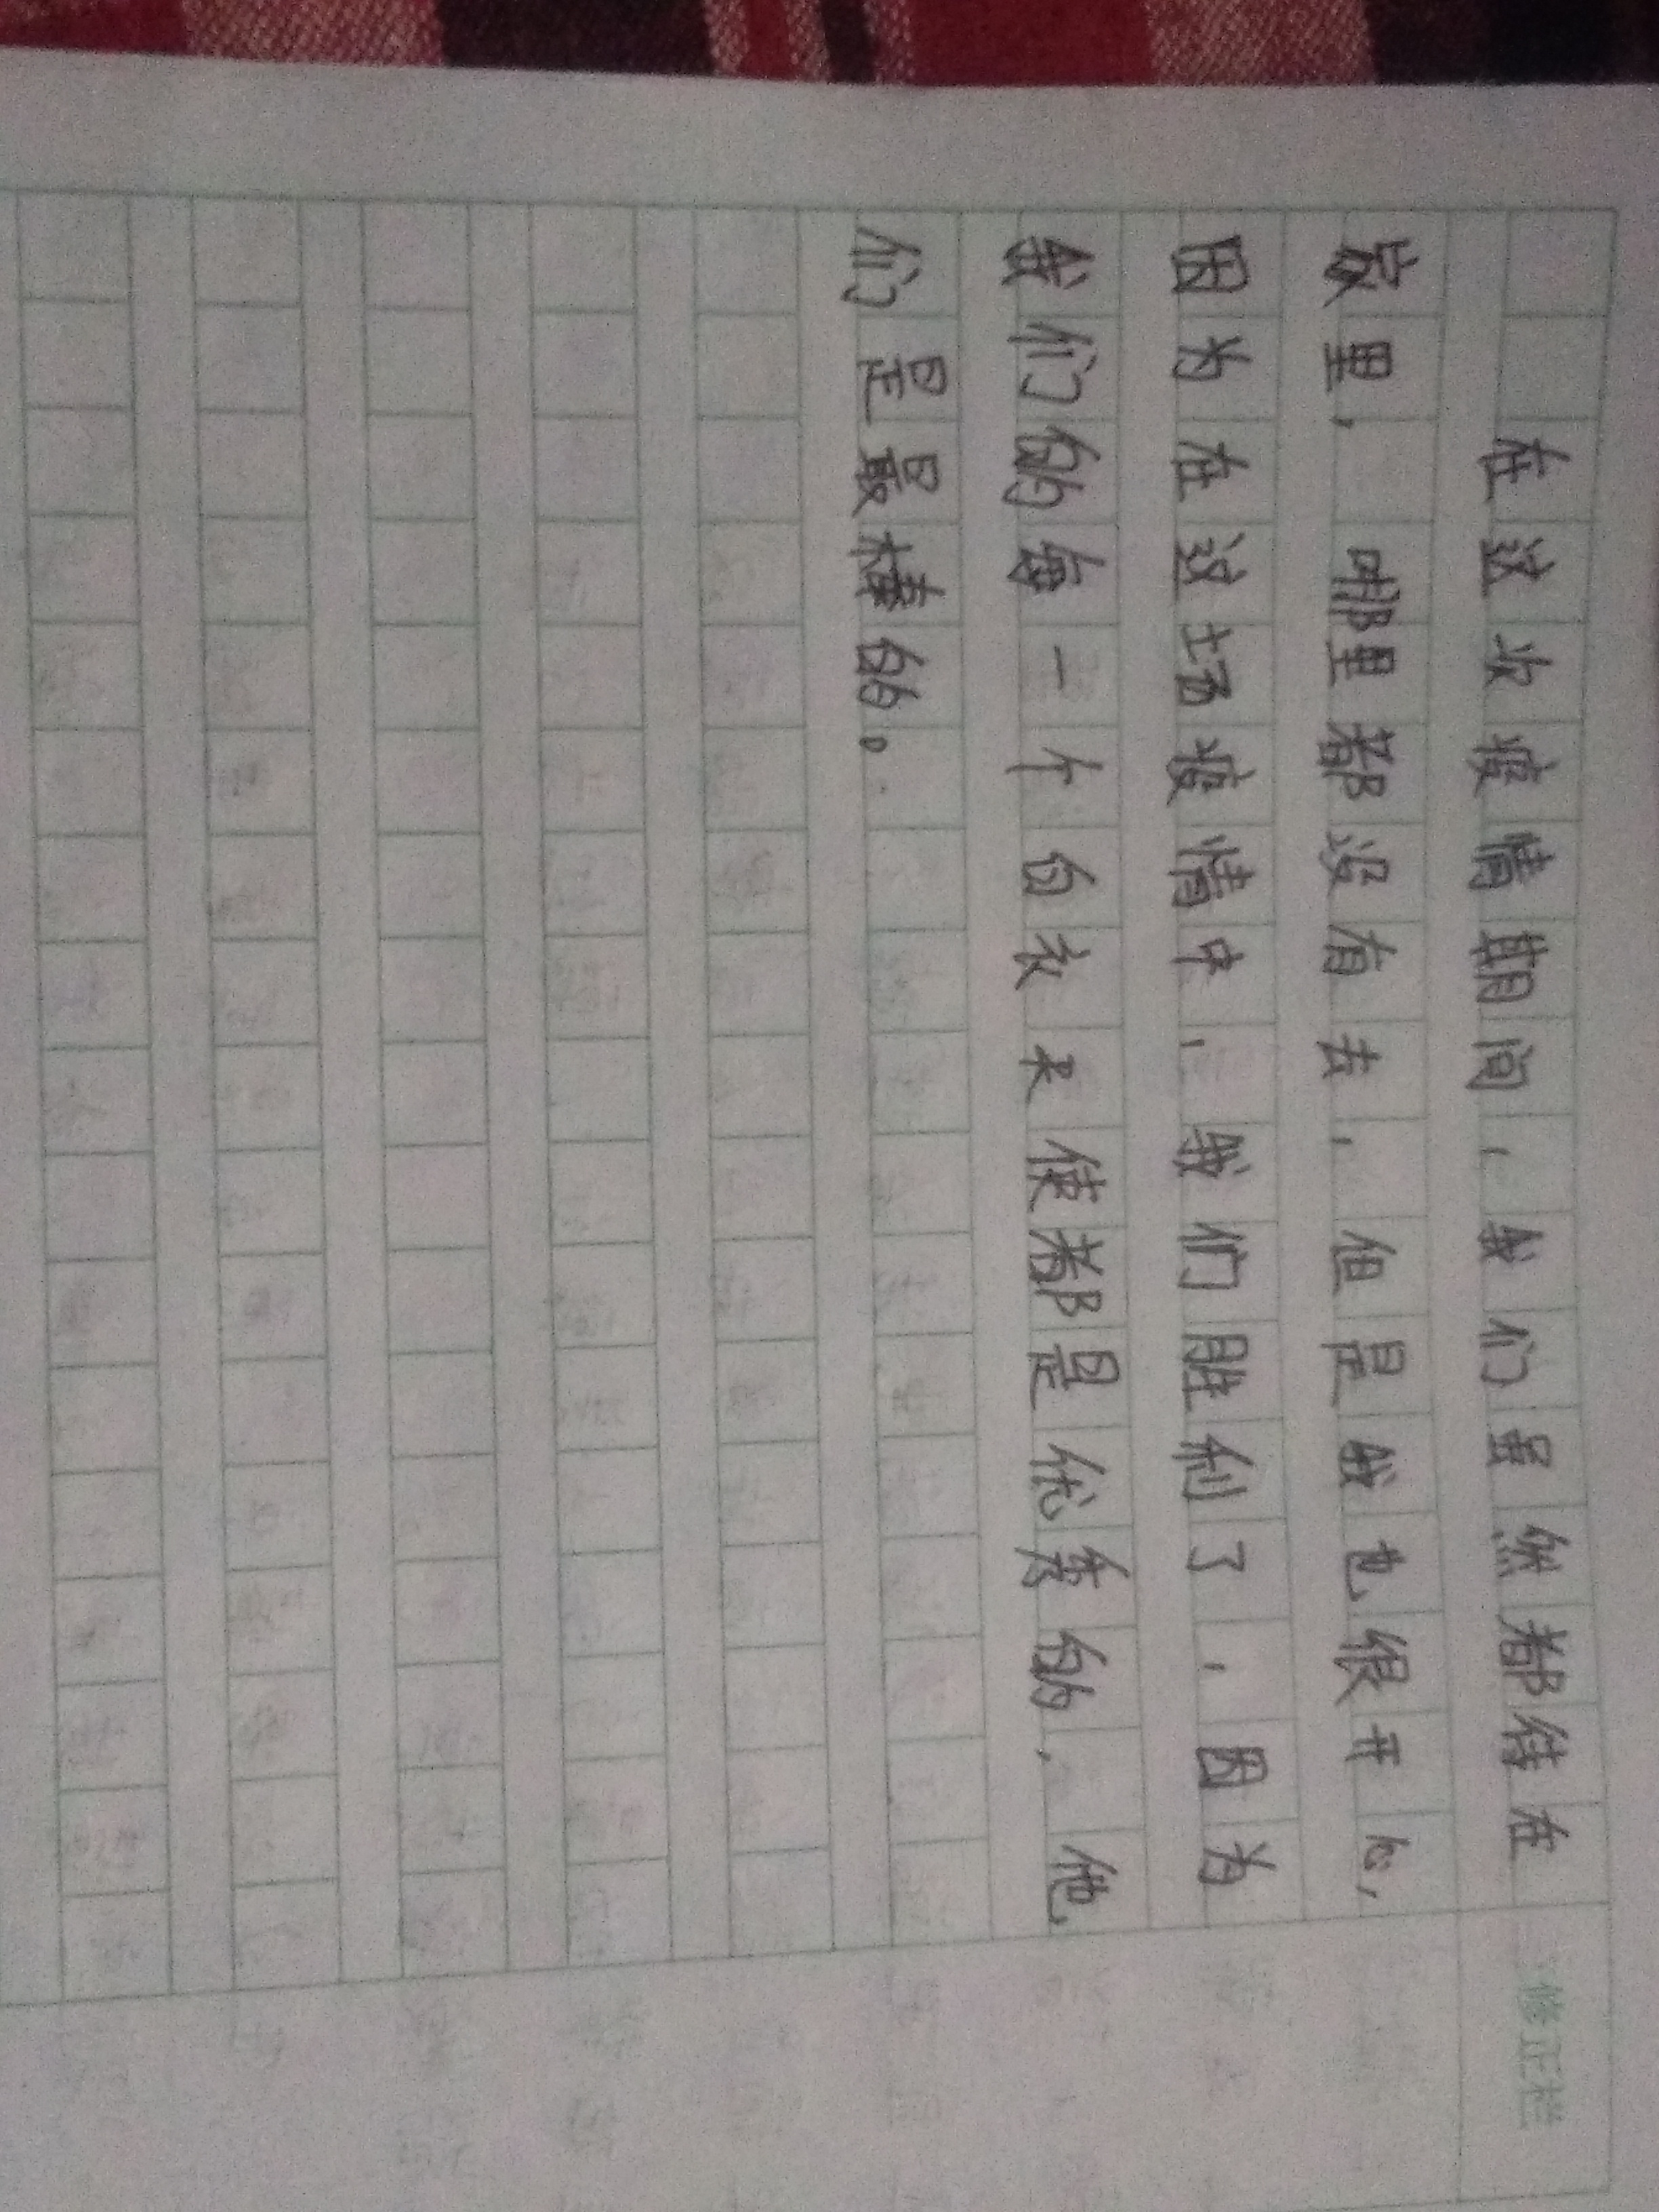 在这次疫情期间，我们虽然都待在
家里，哪里都没有去，但是我也很开心，
因为在这场疫情中，我们胜利了，因为
我们的每一个白衣天使都是优秀的，他
们是最棒的。
修正栏